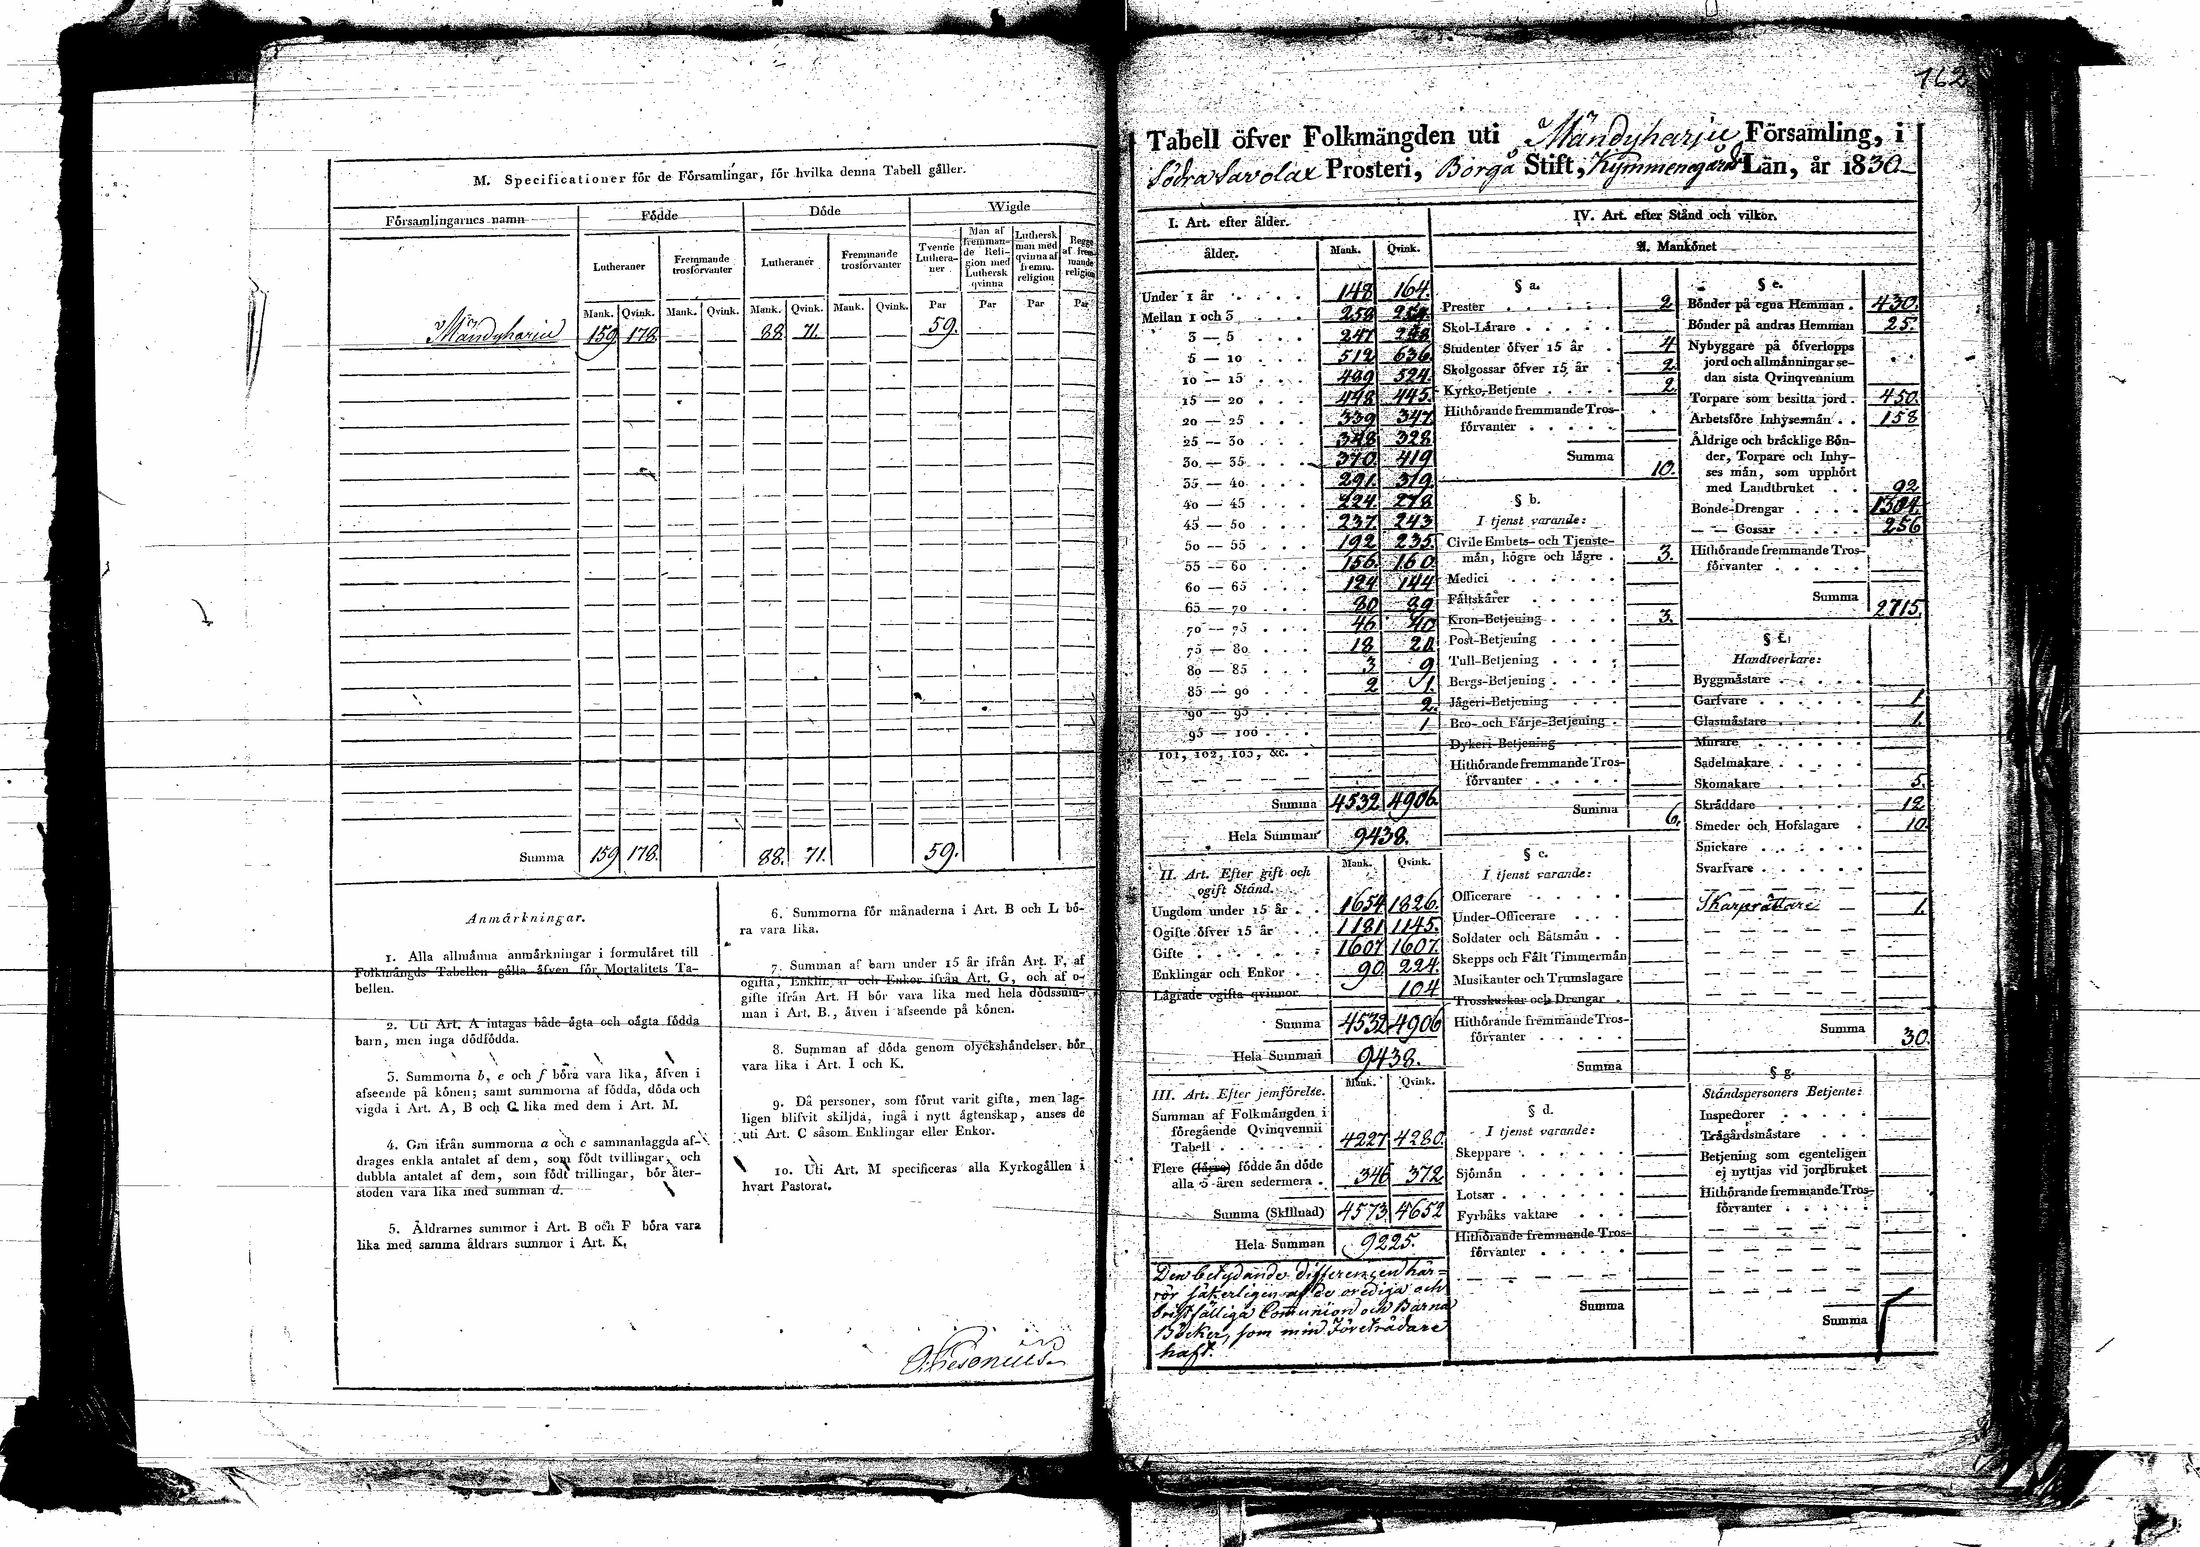 M. Specificationer för de Församlingar, för hvilka denna Tabell gäller.
Församlingarnes namn
Födde
Döde
Wigde
Lutheraner
Fremmande trosförvanter
Lutheraner
Fremmande trosförvanter
Tvenne Lutheraner
Man af fremmande Religion med Luthersk qvinna
Luthersk man med qvinna af fremm. religion
Begge af fremmande religion
Mank. Qvink. Mank. Qvink. Mank. Qvink. Mank. Qvink. Par Par Par Par
Mändyharju 159 178. 88. 71. 59.
Summa 159 178. 88. 71. 59.
Anmärkningar.
1. Alla allmänna anmärkningar i formuläret till
Folkmängds Tabellen gälla äfven för Mortalitets Ta-
bellen.
2. Uti Art. A intagas både ägta och oägta födda
barn, men inga dödfödda.
3. Summorna b, e och f böra vara lika, äfven i
afseende på könen; samt summorna af födda, döda och
vigda i Art. A, B och G lika med dem i Art. M.
4. Om ifrån summorna a och c sammanlaggda af-
drages enkla antalet af dem, som födt tvillingar, och
dubbla antalet af dem, som födt trillingar, bör åter-
stoden vara lika med summan d.
5. Åldrarnes summor i Art. B och F böra vara
lika med samma åldrars summor i Art. K.
6. Summorna för månaderna i Art. B och L bö-
ra vara lika.
7. Summan af barn under 15 år ifrån Art. F, af
ogifta, Enklingar och Enkor ifrån Art. G, och af o-
gifte ifrån Art. H bör vara lika med hela dödssum-
man i Art. B., äfven i afseende på könen.
8. Summan af döda genom olyckshändelser bör
vara lika i Art. I och K.
9. Då personer, som förut varit gifta, men lag-
ligen blifvit skiljda, ingå i nytt ägtenskap, anses de
uti Art. C såsom Enklingar eller Enkor.
10. Uti Art. M specificeras alla Kyrkogällen i
hvart Pastorat.
162
Tabell öfver Folkmängden uti Mändyharju Församling, i
Södra Savolax Prosteri, Borgå Stift, Kymmenegårds Län, år 1830
I. Art. efter ålder.
ålder. Mank. Qvink.
Under 1 år 148 164.
Mellan 1 och 3 258 254.
3 — 5 247 248
5 — 10 512 636
10 — 15 489 524.
15 — 20 448 445.
20 — 25 339 347.
25 — 30 348 328
30 — 35 370 419
35 — 40 291. 319.
40 — 45 224 278
45 — 50 237. 243
50 — 55 192 235.
55 — 60 156. 160
60 — 65 124 144
65 — 70 80 89
70 — 75 46 40
75 — 80 18
80 — 85 3 9
85 — 90 2 1.
90 — 95 2.
95 — 100 1
101, 102, 103, &c.
Summa 4532 4906.
Hela Summan 9438.
II. Art. Efter gift och
ogift Stånd. Mank. Qvink.
Ungdom under 15 år 1654 1826.
Ogifte öfver 15 år 1181 1145.
Gifte 1607 1607.
Enklingar och Enkor 90 224.
Lägrade ogifta qvinnor 104
Summa 4532 4906
Hela Summan 9438.
III. Art. Efter jemförelse. Mank. Qvink.
Summan af Folkmängden i
föregående Qvinqvennii
Tabell 4227 4280.
Flere (färre) födde än döde
alla 5 åren sedermera 346 372
Summa (Skillnad) 4573 4652
Hela Summan 9225.
Den betydande differensen här-
rör säkerligen af de orediga och
bristfälliga Communion och Barna
Böcker, som min Företrädare
haft.
IV. Art. efter Stånd och vilkor.
A. Mankönet
§ a.
Prester 2
Skol-Lärare
Studenter öfver 15 år 4
Skolgossar öfver 15 år 2.
Kyrko-Betjente 2.
Hithörande fremmande Tros-
förvanter
Summa 10.
§ b.
I tjenst varande:
Civile Embets- och Tjenste-
män, högre och lägre 3.
Medici
Fältskärer
Kron-Betjening 3.
Post-Betjening
Tull-Betjening
Bergs-Betjening
Jägeri-Betjening
Bro- och Färje-Betjening
Dykeri-Betjening
Hithörande fremmande Tros-
förvanter
Summa 6.
§ c.
I tjenst varande:
Officerare
Under-Officerare
Soldater och Båtsmän
Skepps och Fält Timmermän
Musikanter och Trumslagare
Trosskuskar och Drengar
Hithörande fremmande Tros-
förvanter
Summa
§ d.
I tjenst varande:
Skeppare
Sjömän
Lotsar
Fyrbåks vaktare
Hithörande fremmande Tros-
förvanter
Summa
§ e.
Bönder på egna Hemman 430.
Bönder på andras Hemman 25.
Nybyggare på öfverlopps
jord och allmänningar se-
dan sista Qvinqvennium
Torpare som besitta jord 450.
Arbetsföre Inhysesmän 158
Åldrige och bräcklige Bön-
der, Torpare och Inhy-
ses män, som upphört
med Landtbruket 92
Bonde-Drengar 1304.
— — Gossar 256
Hithörande fremmande Tros-
förvanter
Summa 2715.
§ f.
Handtverkare:
Byggmästare
Garfvare 1.
Glasmästare 1.
Murare
Sadelmakare
Skomakare 5.
Skräddare 12
Smeder och Hofslagare 10.
Snickare
Svarfvare
Skarprättare 1.
Summa 30.
§ g.
Ståndspersoners Betjente:
Inspectorer
Trägårdsmästare
Betjening som egenteligen
ej nyttjas vid jordbruket
Hithörande fremmande Tros-
förvanter
Summa